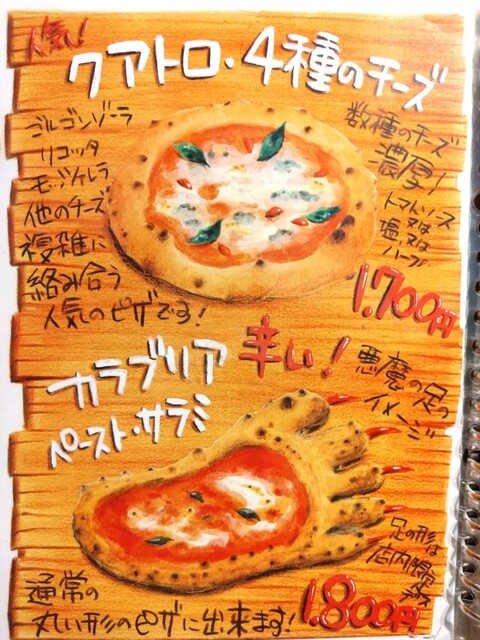 人気!
クアトロ・4種のチーズ
ゴルゴンゾーラ
リコッタ
モッツァレラ
他のチーズ
複雑に
絡み合う
人気のピザです!
数種のチーズ
濃厚!
トマトソース
又は
塩又は
ハーフ
1.700円
カラブリア
ペースト・サラミ
辛い!
悪魔の足の
イメージ
足の形は
店内限定
通常の
丸い形のピザに出来ます!
1.800円